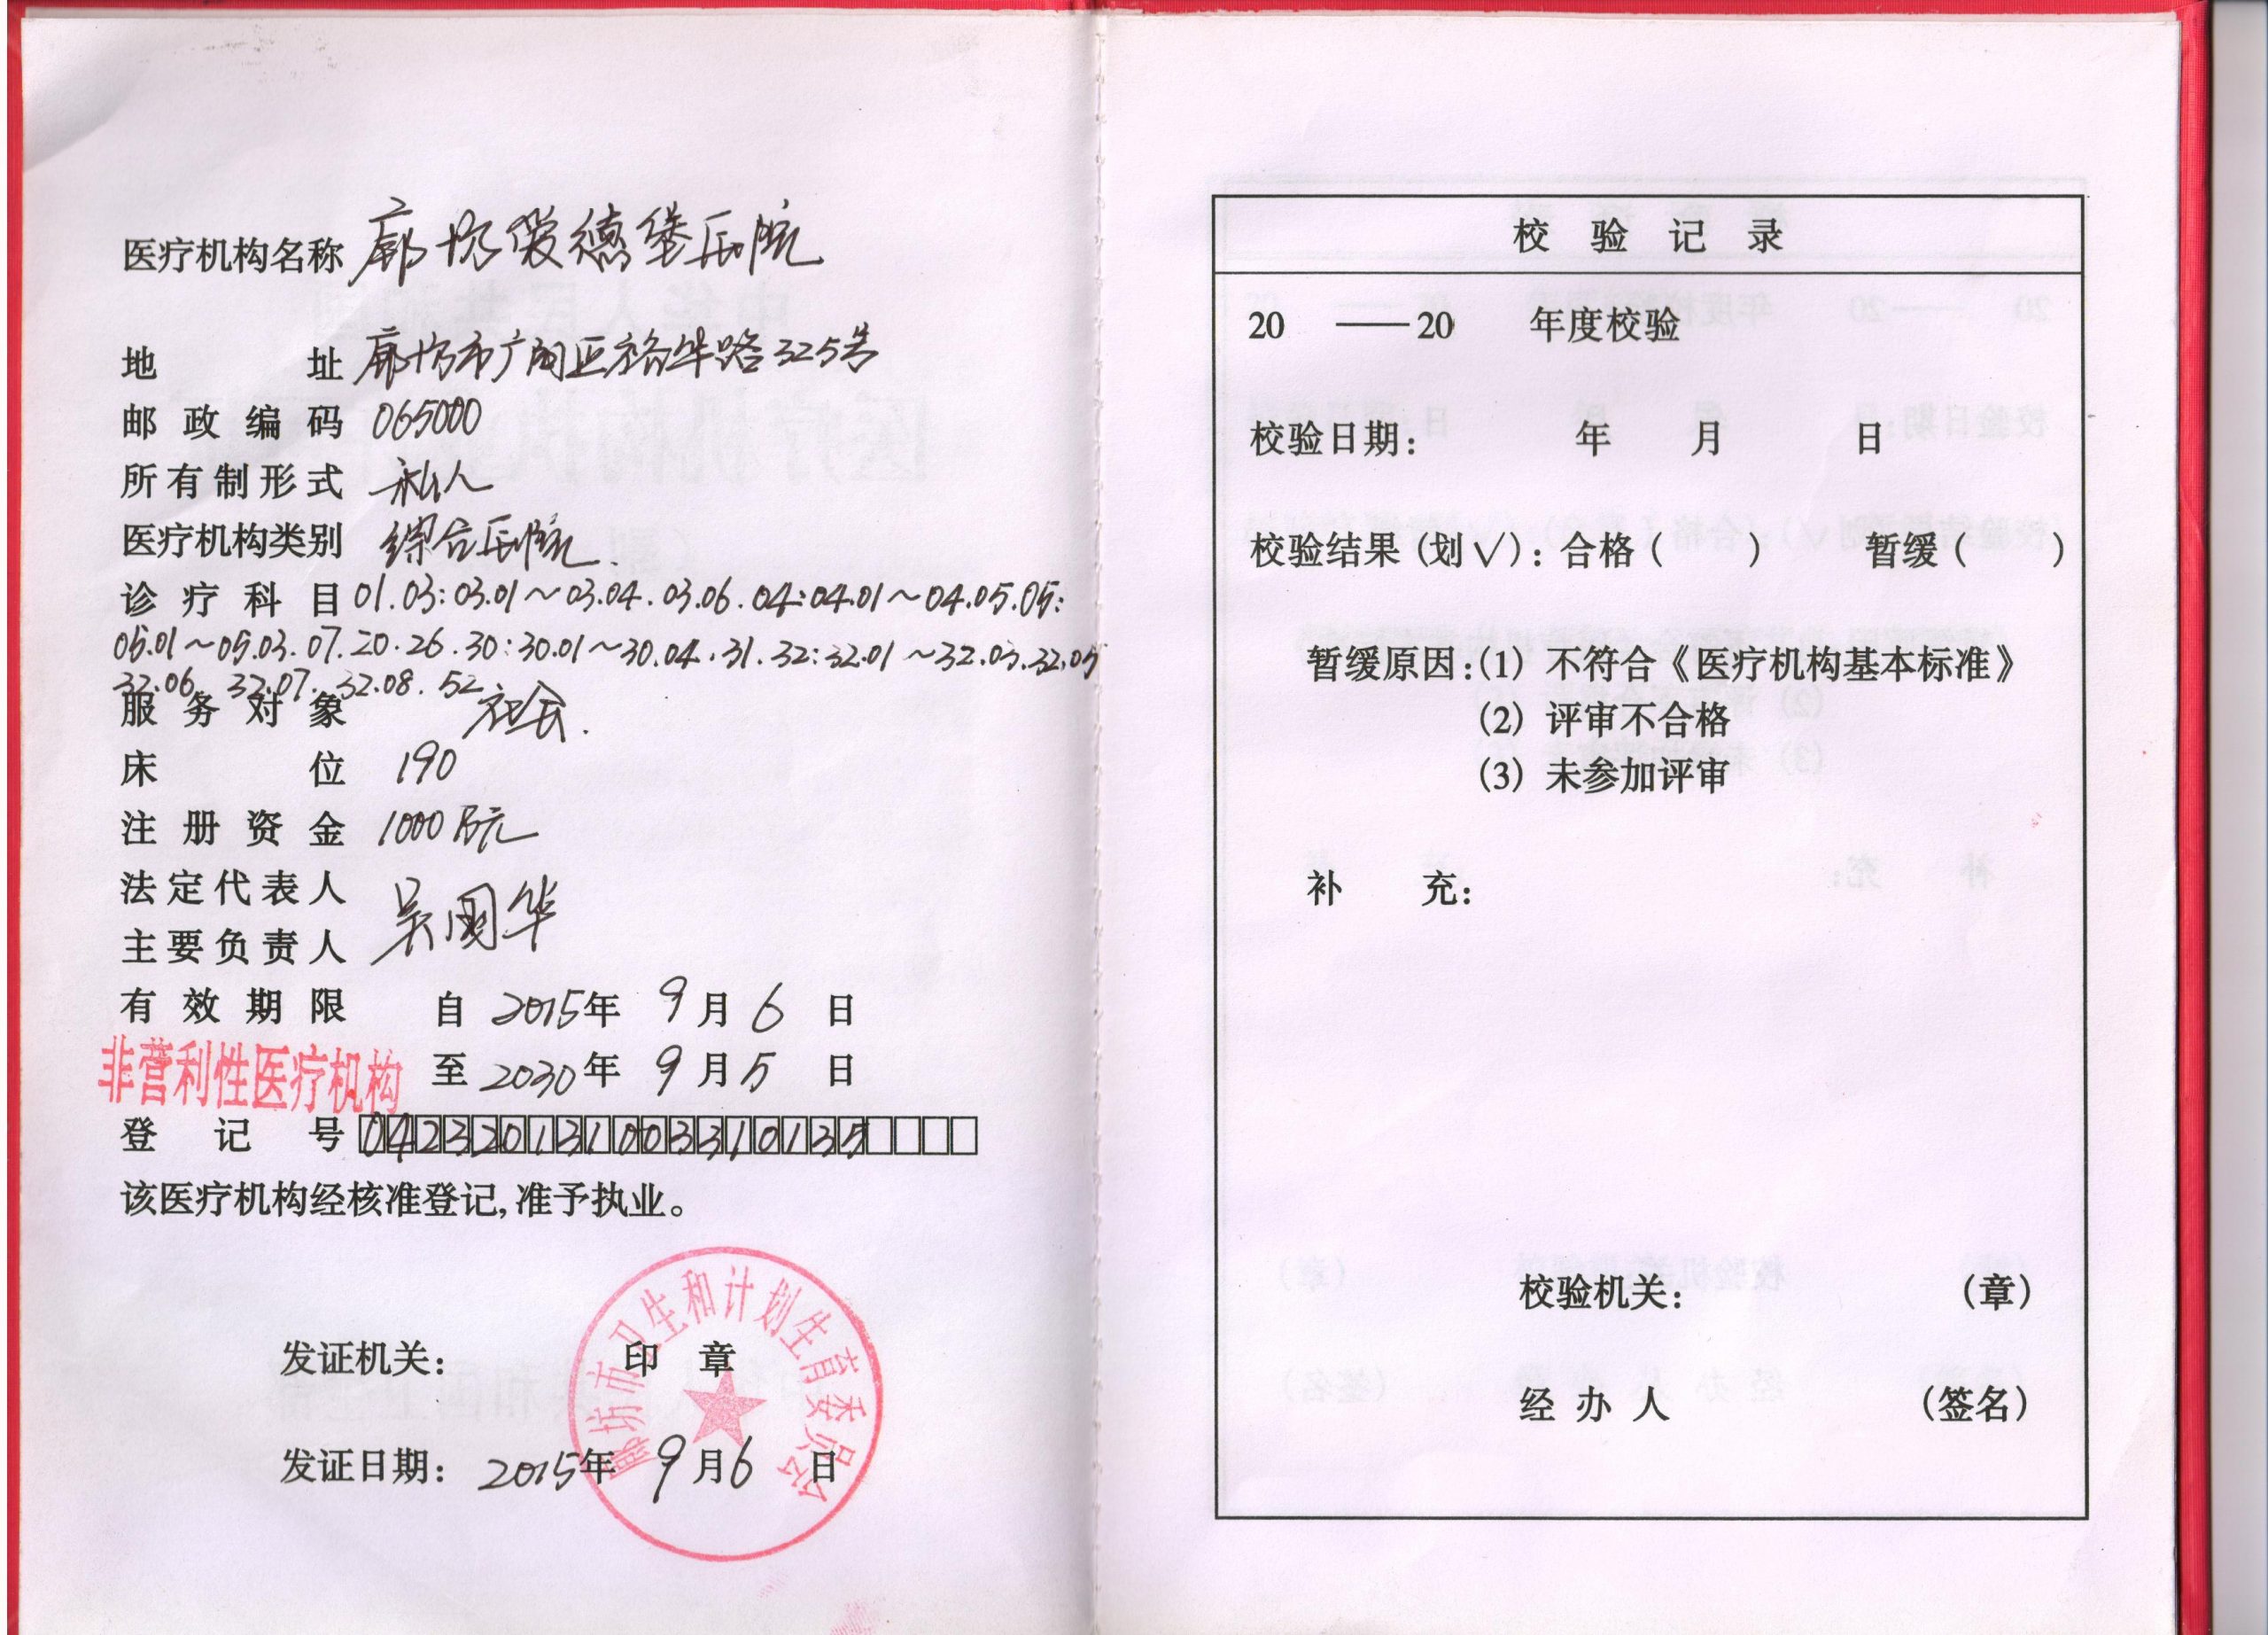 医疗机构名称 廊坊爱德堡医院
地 址 廊坊市广阳区裕华路325号
邮政编码 065000
所有制形式 私人
医疗机构类别 综合医院.
诊疗科目 01.03:03.01~03.04.03.06.04:04.01~04.05.05:
05.01~05.03.07.20.26.30:30.01~30.04.31.32:32.01~32.03.32.05
32.06. 32.07. 32.08. 52
服务对象 社会.
床 位 190
注册资金 1000万元
法定代表人
吴国华
主要负责人
有效期限 自 2015年 9月6日
非营利性医疗机构 至 2030年 9月5日
登记号 042320131003310135
该医疗机构经核准登记,准予执业。
发证机关: 印 章
廊坊市卫生和计划生育委员会
发证日期: 2015年 9月6日
校 验 记 录
20 ——20 年度校验
校验日期: 年 月 日
校验结果(划√):合格( ) 暂缓( )
暂缓原因:(1) 不符合《医疗机构基本标准》
(2) 评审不合格
(3) 未参加评审
补 充:
校验机关: (章)
经办人 (签名)